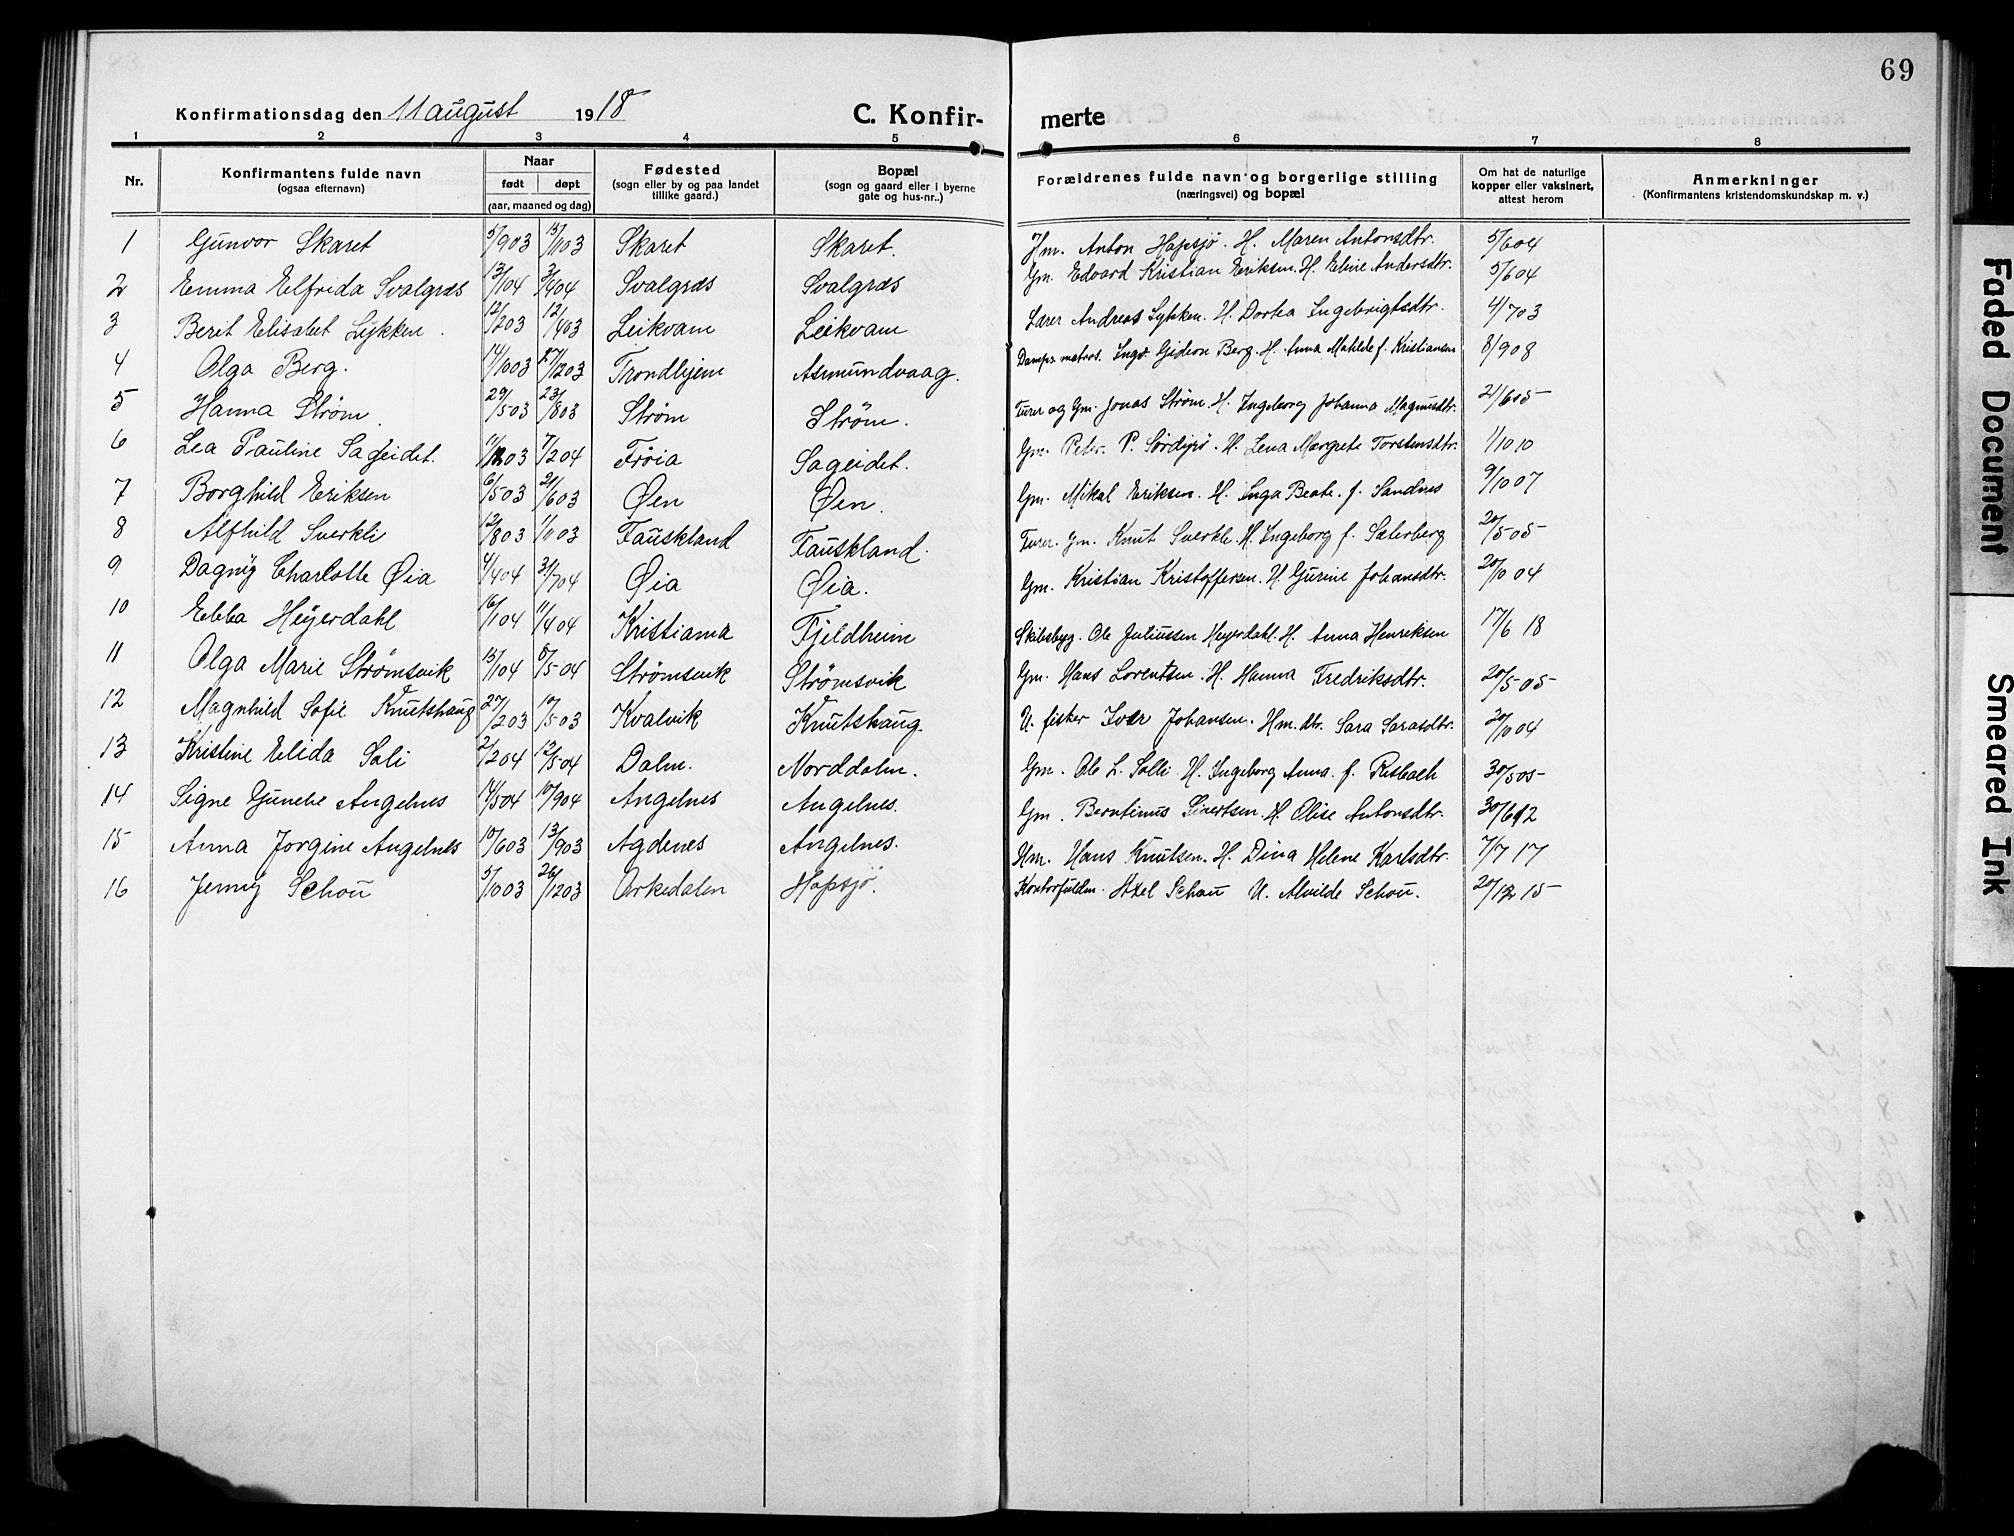 69
Konfirmationsdag den 11 august 1918 C. Konfir- merte
1 2 3 4 5 6 7 8
Nr. Konfirmantens fulde navn (ogsaa efternavn) Naar født døpt (aar, maaned og dag) Fødested (sogn eller by og paa landet tillike gaard.) Bopæl (sogn og gaard eller i byerne gate og hus-nr..) Forældrenes fulde navn og borgerlige stilling (næringsvei) og bopæl Om hat de naturlige kopper eller vaksinert, attest herom Anmerkninger (Konfirmantens kristendomskundskap m. v.)
1 Gunvor Skaret 5/9 03 15/11 03 Skaret Skaret. Hm. Anton Hopsjø. H. Maren Antonsdtr. 5/6 04
2 Emma Elfrida Svalgræs 13/1 04 3/4 04 Svalgræs Svalgræs Gm. Edvard Kristian Eriksen. H. Eline Andersdtr. 5/6 04
3 Berit Elisabet Lykken. 12/2 03 12/4 03 Leikvam Leikvam Lærer Andreas Lykken. H. Dortea Ingebrigtsdtr. 4/7 03
4 Olga Berg. 14/10 03 27/12 03 Trondhjem Asmundvaag. Damps. matros. Ingv. Gideon Berg. H. Anna Matilde f. Kristiansen 8/9 08
5 Hanna Strøm 29/5 03 23/8 03 Strøm Strøm. Furer og Gm. Jonas Strøm. H. Ingeborg Johanna Magnusdtr. 21/6 05
6 Lea Pauline Sageidet. 11/12 03 7/2 04 Frøia Sageidet. Gm. Peter P. Sørdyrø. H. Lena Margrete Torstensdtr. 1/10 10
7 Borghild Eriksen 6/5 03 21/6 03 Øen Øen. Gm. Mikal Eriksen. H. Inga Beate. f. Sandnes 9/10 07
8 Alfhild Sverkli 12/8 03 1/11 03 Fauskland Fauskland. Furer. Gm. Knut Sverkli. H. Ingeborg f. Sæterberg 20/5 05
9 Dagny Charlotte Øia 4/4 04 31/7 04 Øia Øia. Gm. Kristian Kristoffersen. H. Gurine Johansdtr. 20/10 04
10 Ebba Heyerdahl 16/1 04 11/4 04 Kristiania Fjeldheim Skibsbyg. Ole Juliussen Heyerdahl. H. Anna Henriksen 17/6 18
11 Olga Marie Strømsvik 15/1 04 8/5 04 Strømsvik Strømsvik Gm. Hans Lorentsen. H. Hanna Fredriksdtr. 20/5 05
12 Magnhild Sofie Knutshaug 27/2 03 17/5 03 Kvalvik Knutshaug. U. fisker Iver Johansen. Hm. dtr. Sara Sarasdtr. 20/10 04
13 Kristine Elida Soli 2/2 04 12/5 04 Dalm. Norddalm. Gm. Ole L. Solli. H. Ingeborg Anna. f. Risbakk 30/5 05
14 Signe Gunelie Angelnes 14/5 04 10/9 04 Angelnes Angelnes. Gm. Berntinus Sivertsen. H. Olise Antonsdtr. 30/6 12
15 Anna Jorgine Angelnes 10/6 03 13/9 03 Agdenes Angelnes. Hm. Hans Knutsen. H. Dina Helene Karlsdtr. 7/7 17
16 Jenny Schou 5/10 03 26/12 03 Orkedalen Hopsjø. Kontorfuldm. Axel Schou U. Alvilde Schou. 20/12 15
Faded Document
Smeared Ink